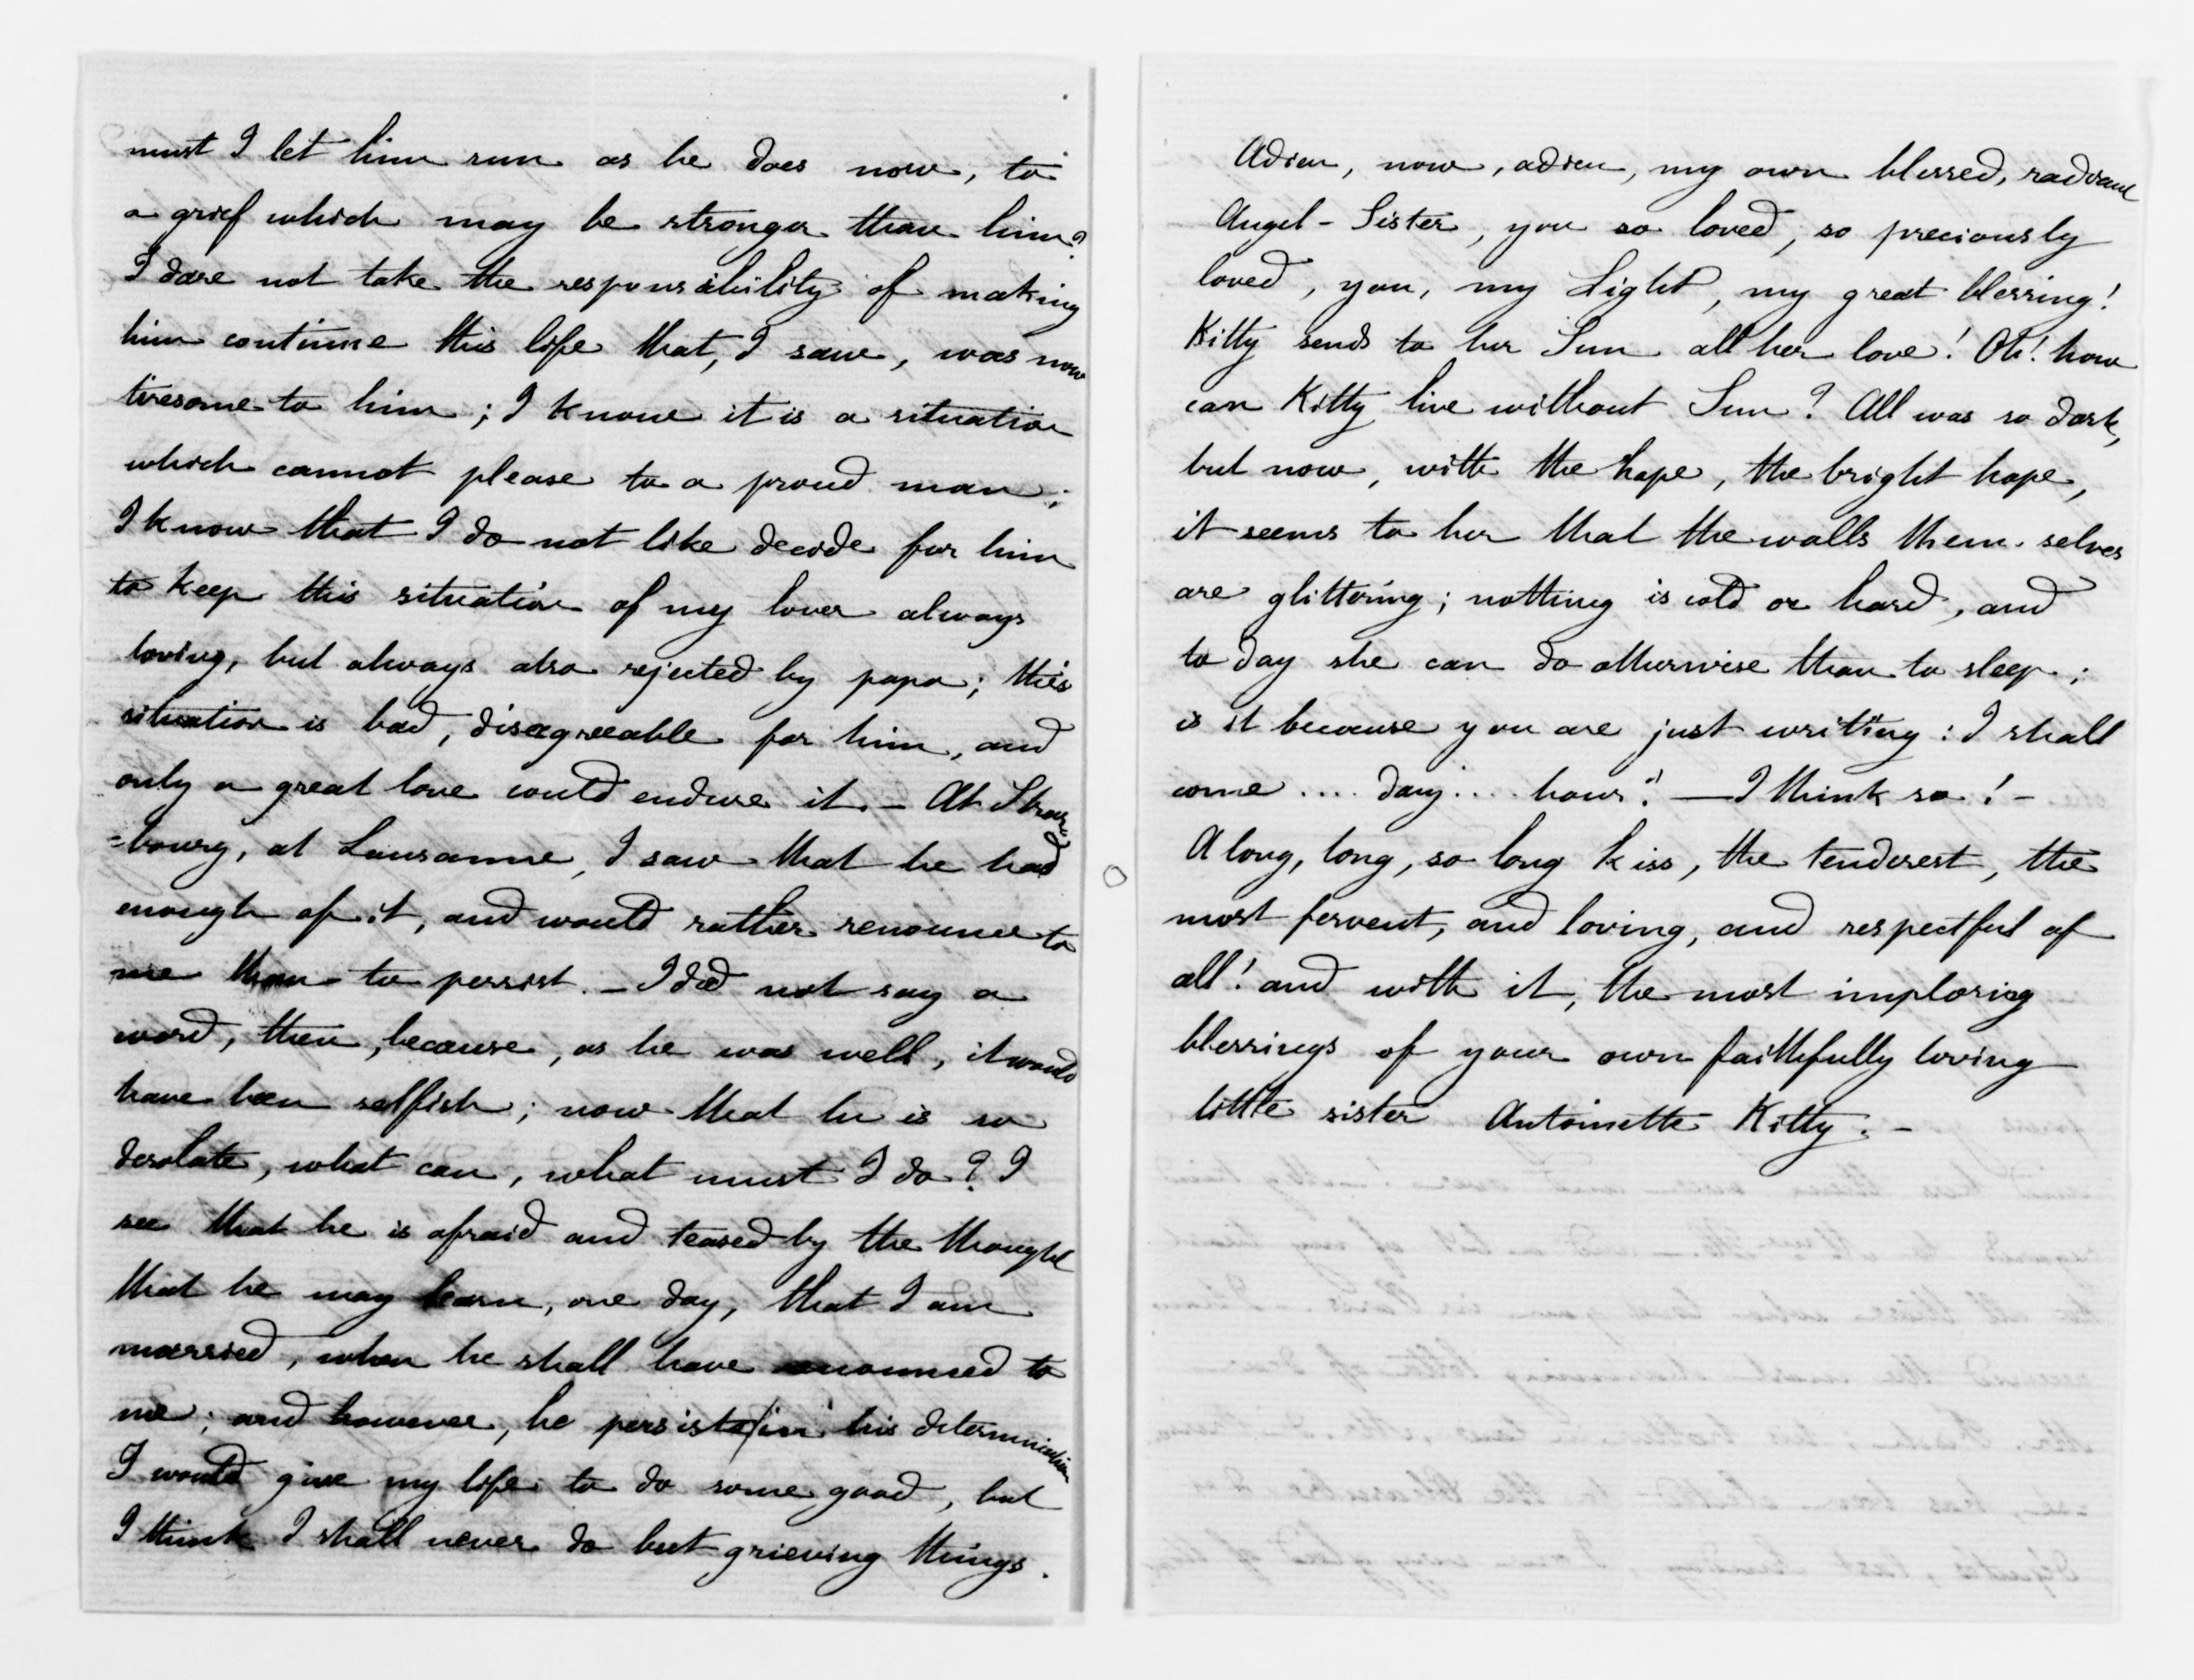 must I let him run as he does now, to
a grief which may be stronger than him?
I dare not take the responsability of making
him continue this life that, I saw, was now
tiresome to him; I know it is a situation
which cannot please to a proud man;
I know that I do not like decide for him
to keep this situation of my lover always
loving, but always also rejected by papa; this
situation is bad, disagreeable for him, and
only a great love could endure it. - At Stras
=bourg, at Lausanne, I saw that he had
enough of it, and would rather renounce to
me than to persist. - I did not say a
word, then, because, as he was well, it would
have been selfish; now that he is so
desolate, what can, what must I do? I
see that he is afraid and teased by the thought
that he may learn, one day, that I am
married, when he shall have renounced to
me; and however, he persists in his determination
I would give my life to do some good, but
I think I shall never do but grieving things.
Adieu, now, adieu, my own blessed, radiant
Angel-Sister, you so loved, so preciously
loved, you, my Light, my great blessing!
Kitty sends to her Sun all her love! Oh! how
can Kitty live without Sun? All was so dark,
but now, with the hope, the bright hope,
it seems to her that the walls them-selves
are glittering; nothing is cold or hard, and
to day she can do otherwise than to sleep;
is it because you are just writing: I shall
come .... day... hour." — I think so! -
A long, long, so long kiss, the tenderest, the
most fervent, and loving, and respectful of
all! and with it, the most imploring
blessings of your own faithfully loving
little sister Antoinette Kitty. -